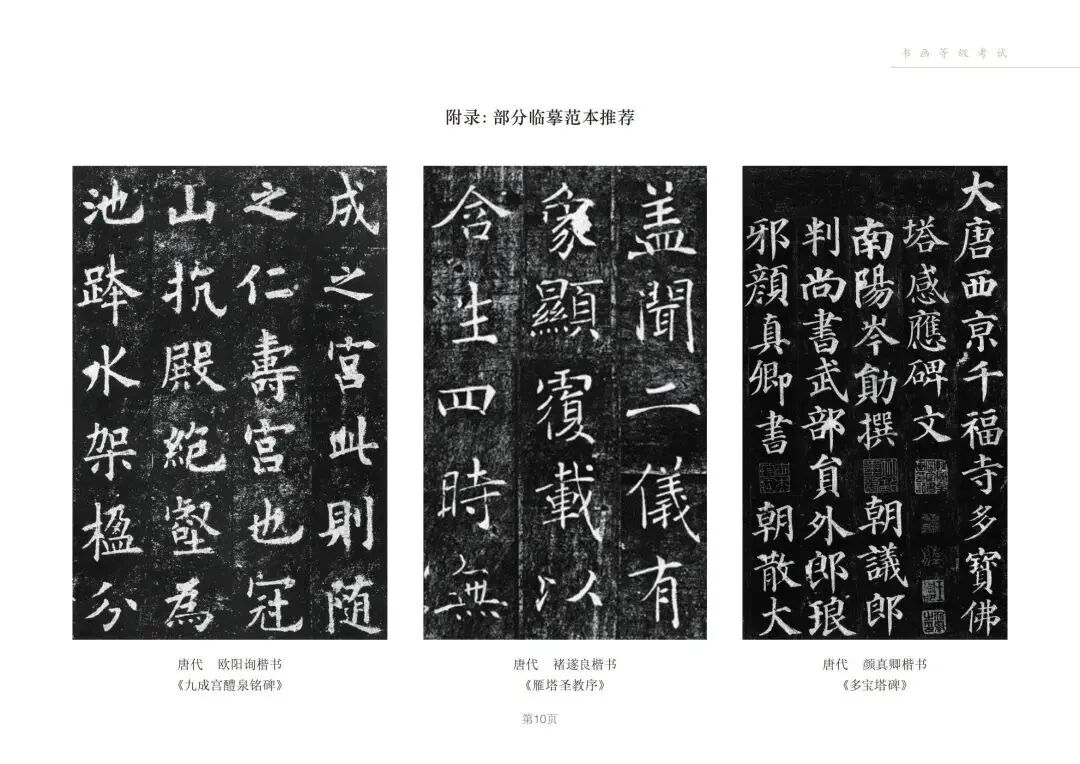 书画等级考试
附录：部分临摹范本推荐
成之宫此則随
之仁壽宫也冠
山抗殿絶壑為
池跨水架楹分
盖聞二儀有
象顯覆載以
含生四時無
大唐西京千福寺多寶佛
塔感應碑文
南陽岑勛撰 朝議郎
判尚書武部員外郎琅
邪顔真卿書 朝散大
唐代 欧阳询楷书
《九成宫醴泉铭碑》
唐代 褚遂良楷书
《雁塔圣教序》
唐代 颜真卿楷书
《多宝塔碑》
第10页